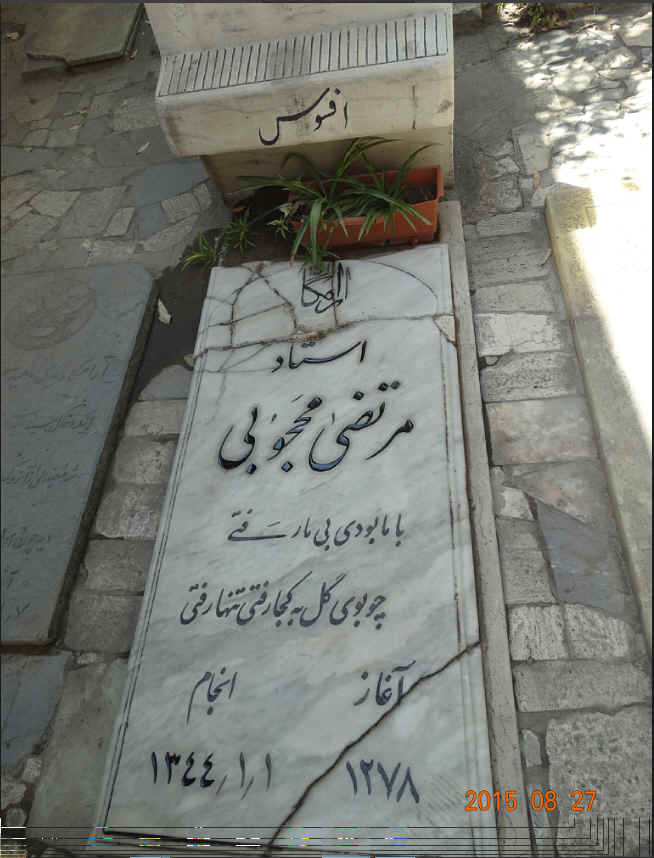 افسوس
استاد
مرتضی محجوبی
با ما بودی بی ما رفتی
چو بوی گل به کجا رفتی تنها رفتی
آغاز انجام
۱۲۷۸ ۱۳۴۴/۱/۱
2015 08 27